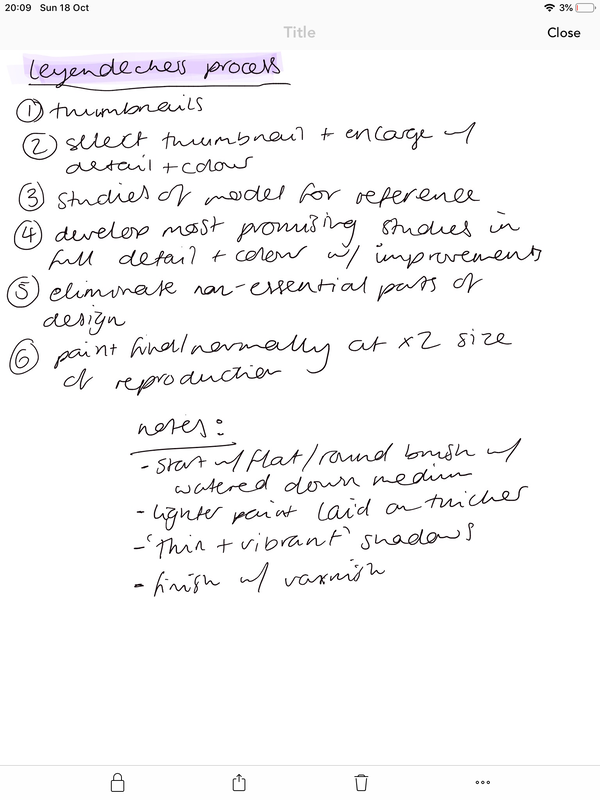 20:09 Sun 18 Oct 3%
Title
Close
leyendeckers process
① thumbnails
② select thumbnail + enlarge w/
detail + colour
③ studies of model for reference
④ develop most promising studies in
full detail + colour w/ improvements
⑤ eliminate non-essential parts of
design
⑥ paint final/normally at x2 size
of reproduction
notes:
- start w/ flat/round brush w/
watered down medium
- lighter paint laid on thicker
- 'thin + vibrant' shadows
- finish w/ varnish